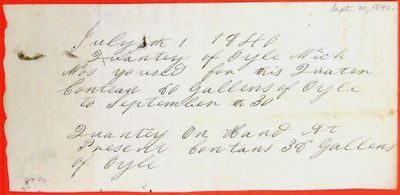 Sept. 30, 1840.
July th 1 1840
Quantey of Oyle Mich
Was yoused for this Quaten
Contean 60 Gallens of Oyle
to September th 30
Quantey On Hand At
Present Contans 36 Gallens
of Oyle